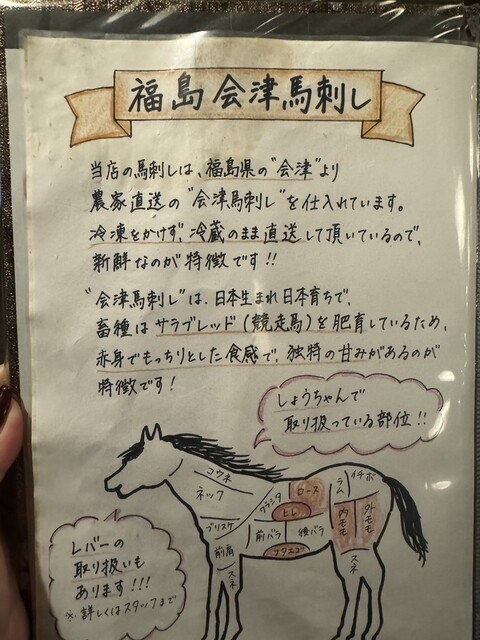 福島会津馬刺し
当店の馬刺しは、福島県の"会津"より
農家直送の"会津馬刺し"を仕入れています。
冷凍をかけず、冷蔵のまま直送して頂いているので、
新鮮なのが特徴です!!
"会津馬刺し"は、日本生まれ日本育ちで、
畜種はサラブレッド(競走馬)を肥育しているため、
赤身でもっちりとした食感で、独特の甘みがあるのが
特徴です!
しょうちゃんで
取り扱っている部位!!
コウネ
ネック
クラシタ
ロース
ラム
イチボ
ヒレ
ブリスケ
前バラ
後バラ
内モモ
外モモ
前肩
フタエゴ
スネ
スネ
レバーの
取り扱いも
あります!!!
※詳しくはスタッフまで